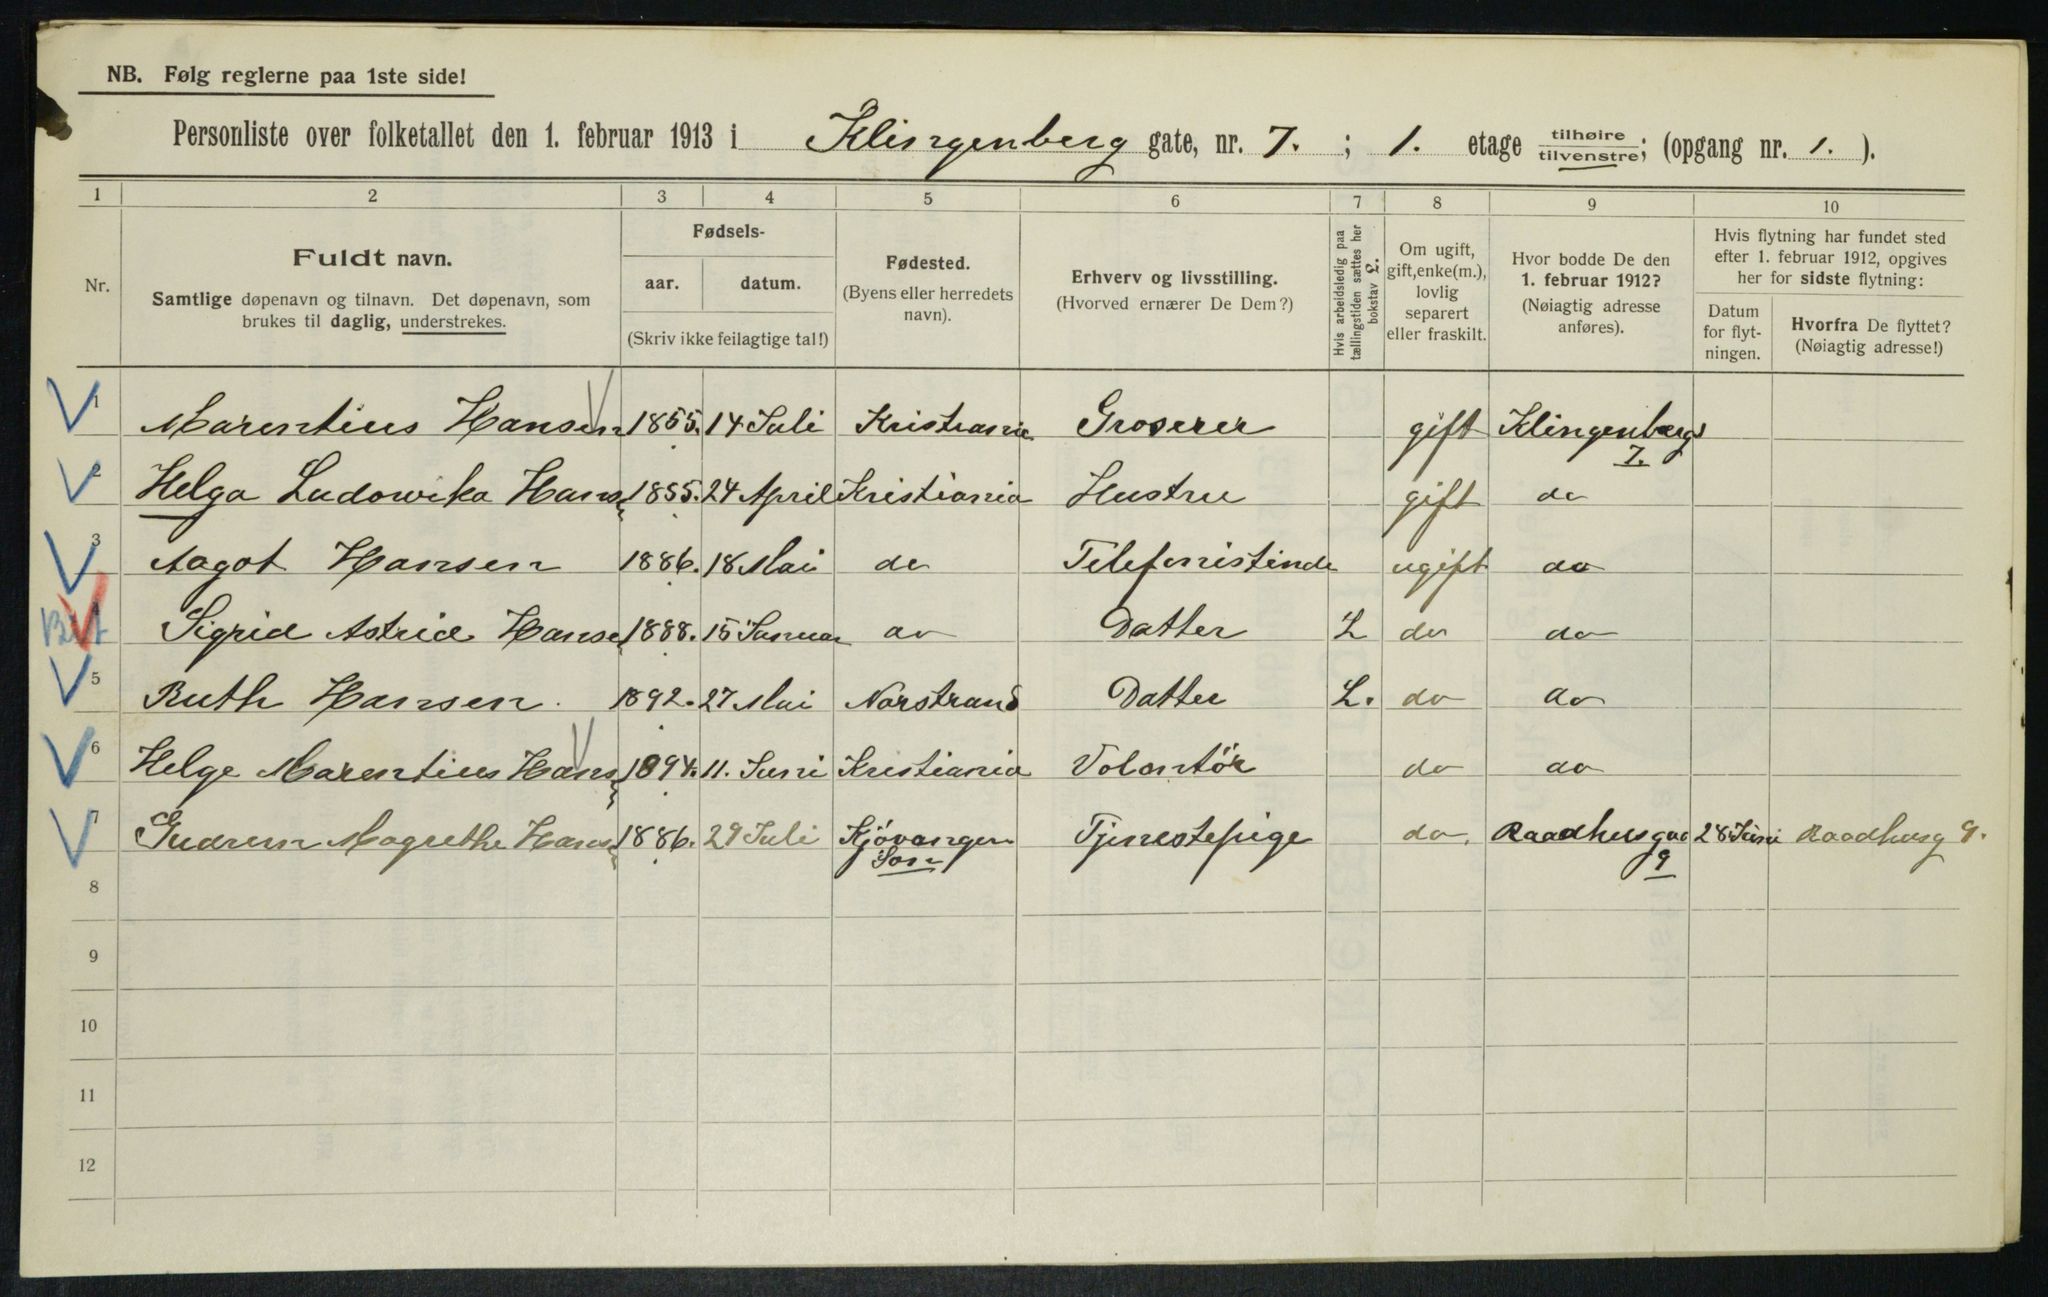 NB. Følg reglerne paa 1ste side!
Personliste over folketallet den 1. februar 1913 i Klingenberg gate, nr. 7. ; 1. etage tilhøire/tilvenstre; (opgang nr. 1. ).
1 2 3 4 5 6 7 8 9 10
Nr.
Fuldt navn.
Samtlige døpenavn og tilnavn. Det døpenavn, som
brukes til daglig, understrekes.
Fødsels-
aar. datum.
(Skriv ikke feilagtige tal!)
Fødested.
(Byens eller herredets
navn).
Erhverv og livsstilling.
(Hvorved ernærer De Dem?)
Hvis arbeidsledig paa
tællingstiden sættes her
bokstav L.
Om ugift,
gift, enke(m.),
lovlig
separert
eller fraskilt.
Hvor bodde De den
1. februar 1912?
(Nøiagtig adresse
anføres).
Hvis flytning har fundet sted
efter 1. februar 1912, opgives
her for sidste flytning:
Datum
for flyt-
ningen.
Hvorfra De flyttet?
(Nøiagtig adresse!)
1 Marentius Hansen 1855. 14 Juli Kristiania Groserer gift Klingenbergs
7.
2 Helga Ludowika Hans 1855. 24 April Kristiania Hustru gift do
3 Aagot Hansen 1886. 18 Mai do Telefonistinde ugift do
4 Sigrid Astrid Hansen 1888. 15 Januar do Datter L do do
5 Ruth Hansen. 1892. 27 Mai Norstrand Datter L. do do
6 Helge Marentius Hans 1894. 11. Juni Kristiania Volontör do do
7 Gudrun Magrethe Hans 1886. 29 Juli Kjövangen Tjenestepige do. Raadhusgad 28 Juni Raadhusg 9.
Son 9
8
9
10
11
12